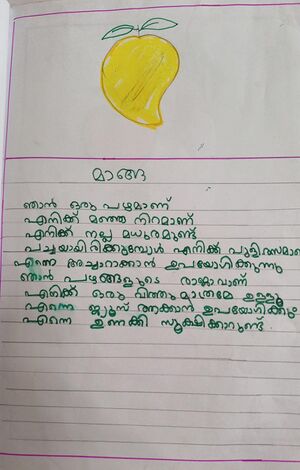 മാങ്ങ
ഞാൻ ഒരു പഴമാണ്
എനിക്ക് മഞ്ഞ നിറമാണ്
എനിക്ക് നല്ല മധുരമുണ്ട്
പച്ചയായിരിക്കുമ്പോൾ എനിക്ക് പുളിരസമാണ്
എന്നെ അച്ചാറാക്കാൻ ഉപയോഗിക്കുന്നു
ഞാൻ പഴങ്ങളുടെ രാജാവാണ്
എനിക്ക് ഒരു വിത്തുമാത്രമേ ഉള്ളൂ
എന്നെ ജ്യൂസ് ആക്കാൻ ഉപയോഗിക്കും
എന്നെ ഉണക്കി സൂക്ഷിക്കാറുണ്ട്